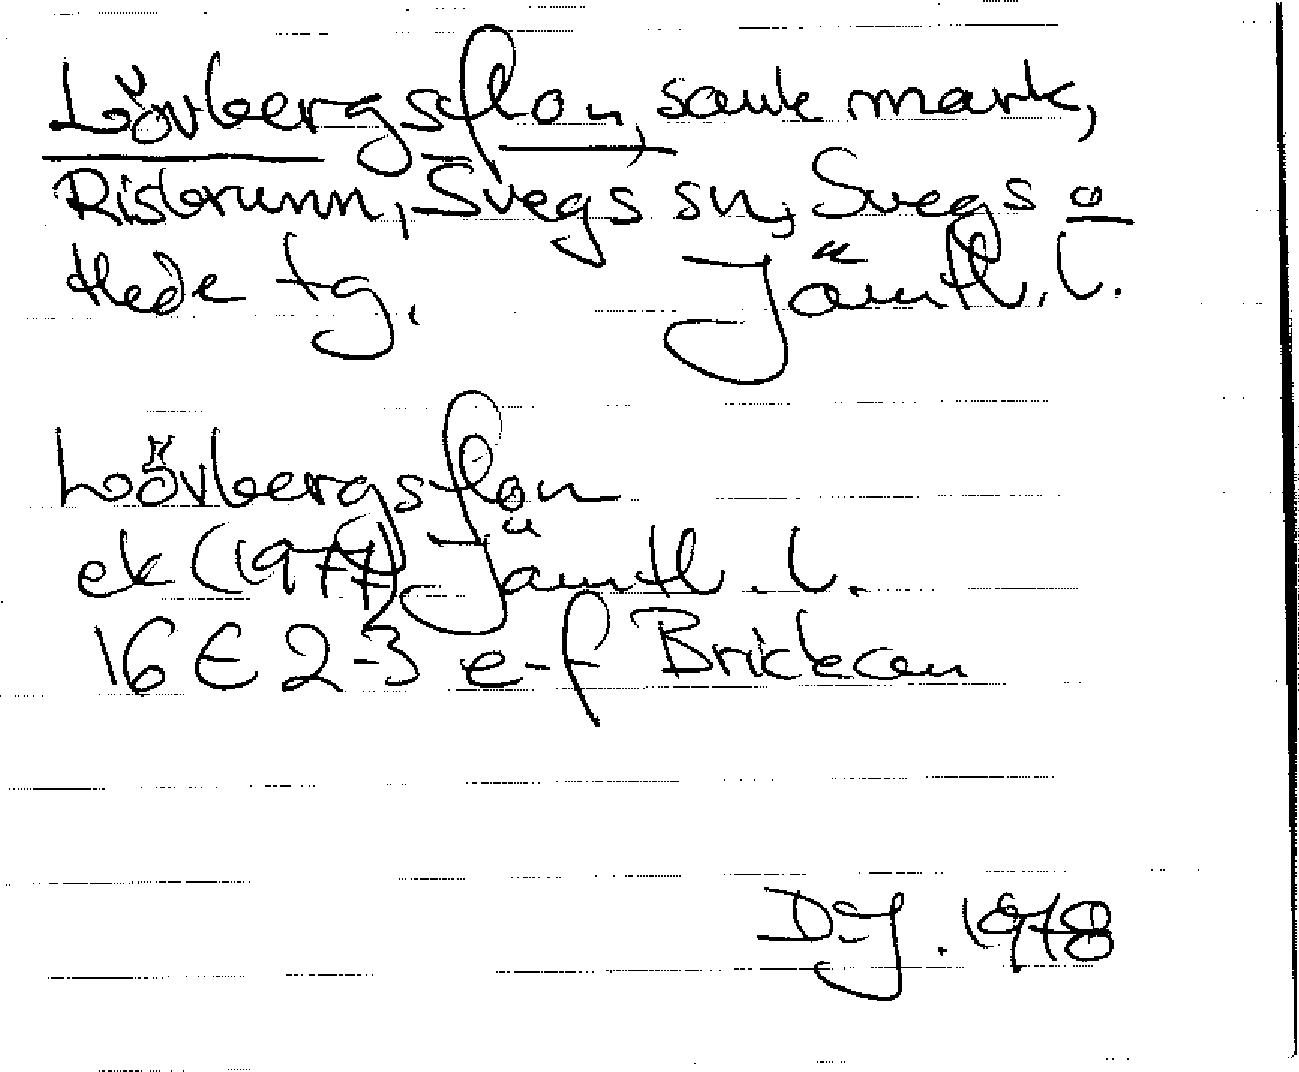 Lövbergsflon, sank mark,
Risbrunn, Svegs sn, Svegs o
Hede tg. Jämtl. l.
Lövbergsflon
ek (1977) Jämtl. l.
16 E 2-3 e-f Brickan
D.J. 1978